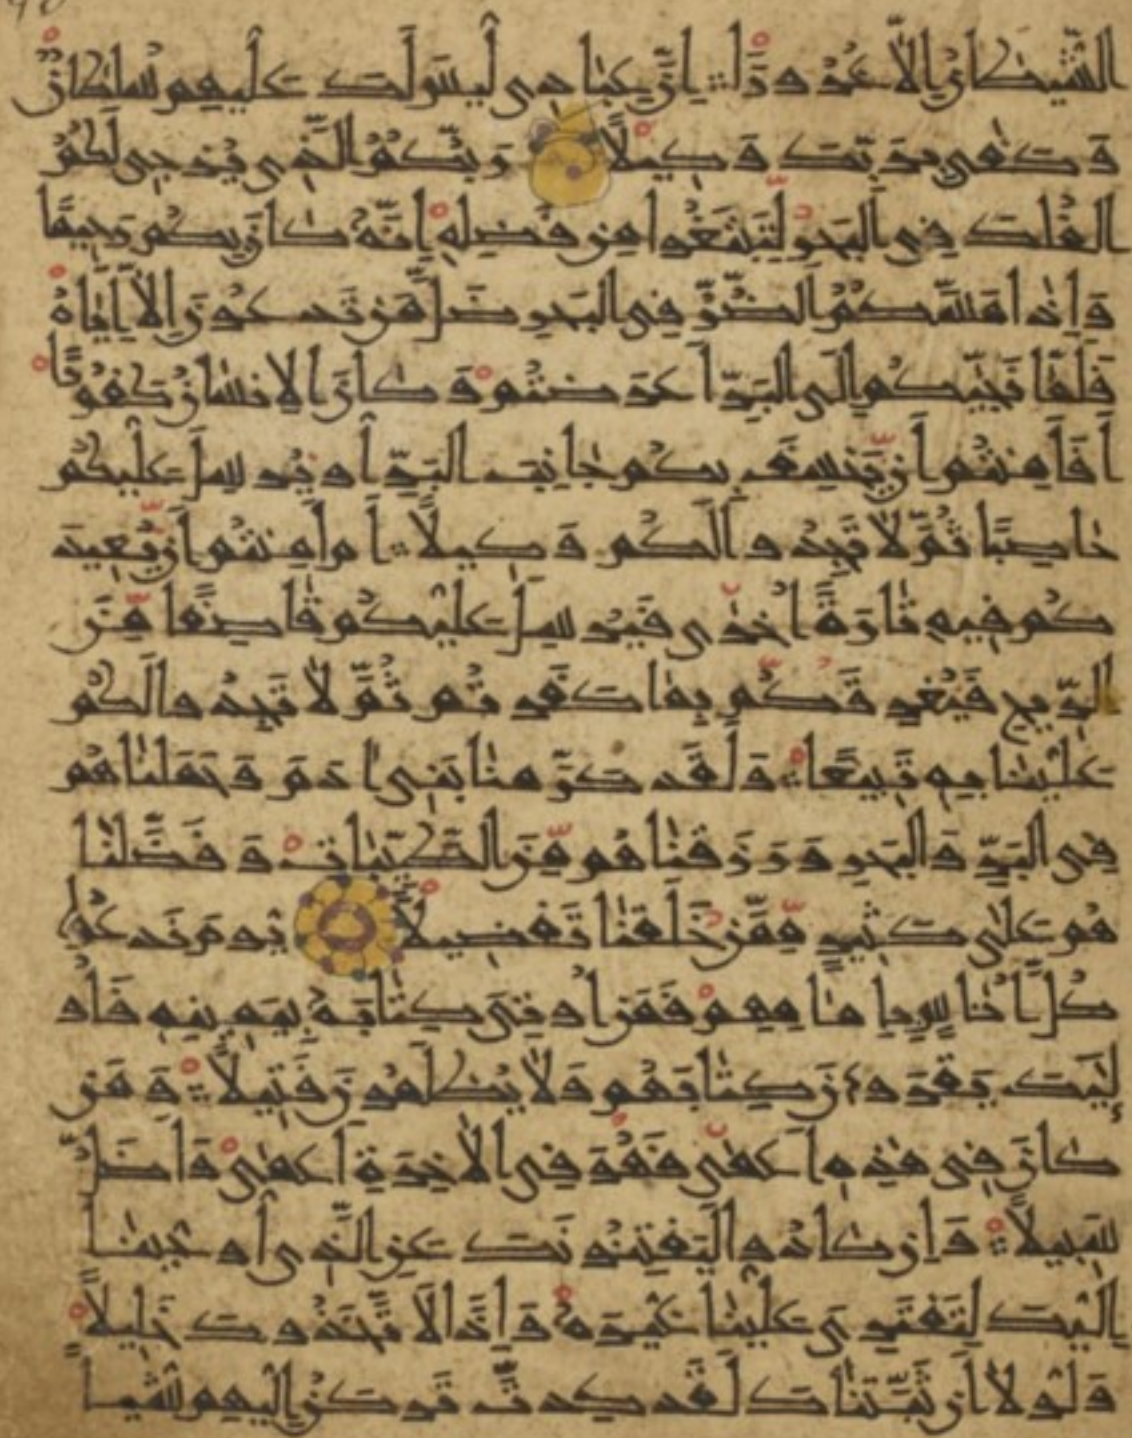 الشَّيْطَانُ إِلَّا غُرُورًا إِنَّ عِبَادِي لَيْسَ لَكَ عَلَيْهِمْ سُلْطَانٌ
وَكَفَى بِرَبِّكَ وَكِيلًا رَبُّكُمُ الَّذِي يُزْجِي لَكُمُ
الْفُلْكَ فِي الْبَحْرِ لِتَبْتَغُوا مِنْ فَضْلِهِ إِنَّهُ كَانَ بِكُمْ رَحِيمًا
وَإِذَا مَسَّكُمُ الضُّرُّ فِي الْبَحْرِ ضَلَّ مَنْ تَدْعُونَ إِلَّا إِيَّاهُ
فَلَمَّا نَجَّيكُمْ إِلَى الْبَرِّ أَعْرَضْتُمْ وَكَانَ الْإِنْسَانُ كَفُورًا
أَفَأَمِنْتُمْ أَنْ يَخْسِفَ بِكُمْ جَانِبَ الْبَرِّ أَوْ يُرْسِلَ عَلَيْكُمْ
حَاصِبًا ثُمَّ لَا تَجِدُوا لَكُمْ وَكِيلًا أَمْ أَمِنْتُمْ أَنْ يُعِيدَ
كُمْ فِيهِ تَارَةً أُخْرَى فَيُرْسِلَ عَلَيْكُمْ قَاصِفًا مِنَ
الرِّيحِ فَيُغْرِقَكُمْ بِمَا كَفَرْتُمْ ثُمَّ لَا تَجِدُوا لَكُمْ
عَلَيْنَا بِهِ تَبِيعًا وَلَقَدْ كَرَّمْنَا بَنِي آدَمَ وَحَمَلْنَاهُمْ
فِي الْبَرِّ وَالْبَحْرِ وَرَزَقْنَاهُمْ مِنَ الطَّيِّبَاتِ وَفَضَّلْنَا
هُمْ عَلَى كَثِيرٍ مِمَّنْ خَلَقْنَا تَفْضِيلًا يَوْمَ نَدْعُوا
كُلَّ أُنَاسٍ بِإِمَامِهِمْ فَمَنْ أُوتِيَ كِتَابَهُ بِيَمِينِهِ فَأُو
لَئِكَ يَقْرَءُونَ كِتَابَهُمْ وَلَا يُظْلَمُونَ فَتِيلًا وَمَنْ
كَانَ فِي هَذِهِ أَعْمَى فَهُوَ فِي الْآخِرَةِ أَعْمَى وَأَضَلُّ
سَبِيلًا وَإِنْ كَادُوا لَيَفْتِنُونَكَ عَنِ الَّذِي أَوْحَيْنَا
إِلَيْكَ لِتَفْتَرِيَ عَلَيْنَا غَيْرَهُ وَإِذًا لَاتَّخَذُوكَ خَلِيلًا
وَلَوْلَا أَنْ ثَبَّتْنَاكَ لَقَدْ كِدْتَ تَرْكَنُ إِلَيْهِمْ شَيْئًا